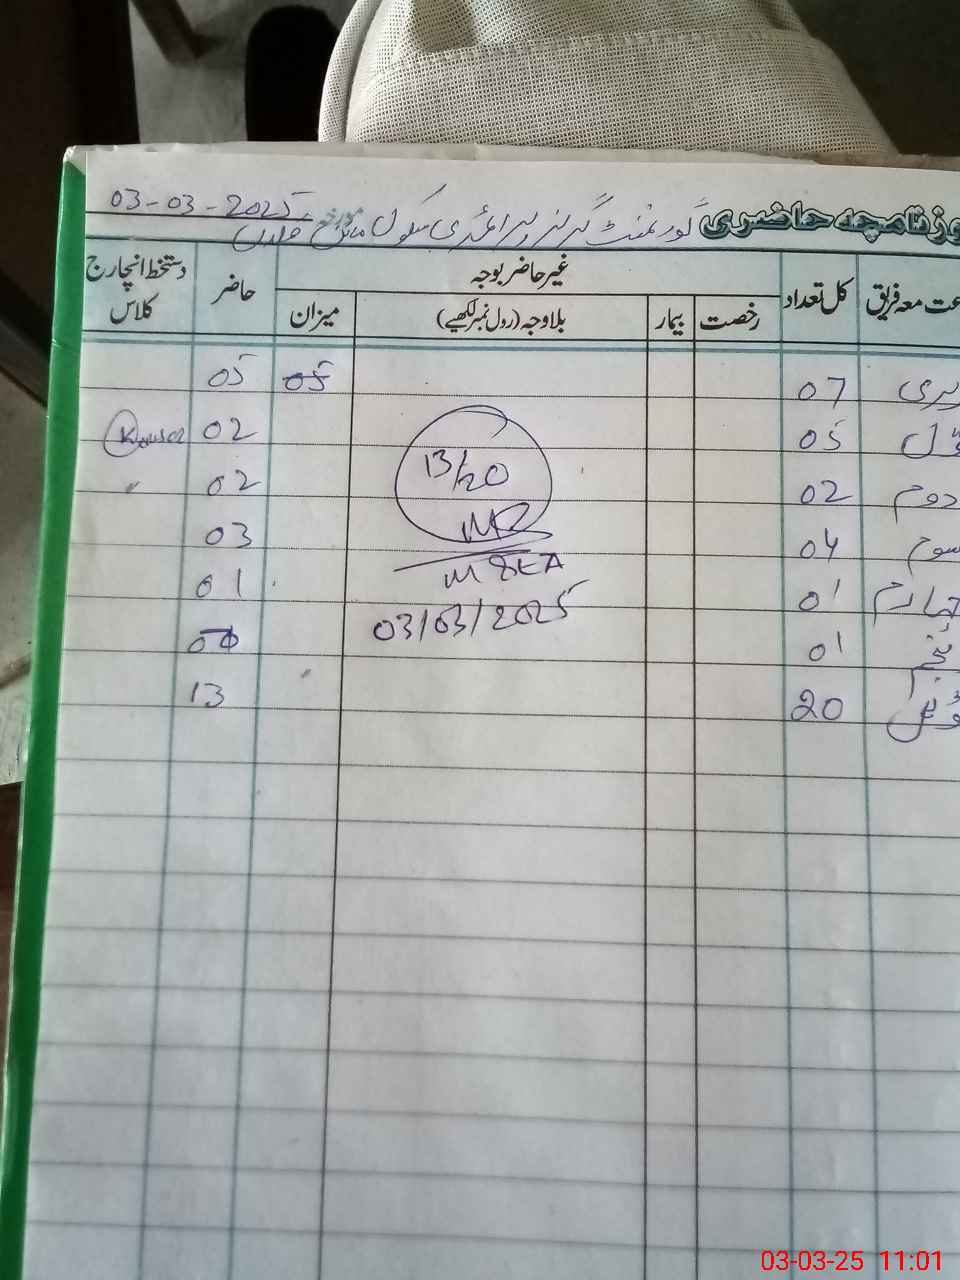 روزنامچہ حاضری گورنمنٹ گرلز پرائمری سکول مورخہ 03-03-2025
جماعت معہ فریق کل تعداد غیر حاضر بوجہ حاضر دستخط انچارج کلاس
رخصت بیمار بلاوجہ (رول نمبر لکھیے) میزان
07 05 05
اول 05 02 Kousar
دوم 02 02 "
سوم 04 03
چہارم 01 01
پنجم 01
ٹوٹل 20 13
13/20
MEA
03/03/2025
03-03-25 11:01